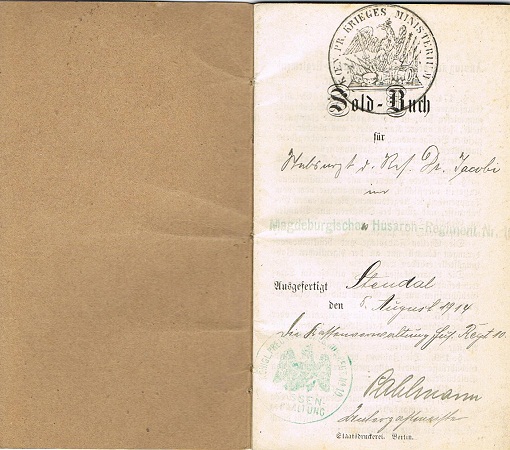 KOEN. PR. KRIEGES MINISTERIUM
Sold-Buch
für
Stabsarzt d. Res. Dr. Jacobi
im
Magdeburgischen Husaren-Regiment Nr. 10
Ausgefertigt Stendal
den 5. August 1914
Die Kassenverwaltung Hus. Regt 10.
KASSEN-
VERWALTUNG
Pahlmann
Staatsdruckerei. Berlin.